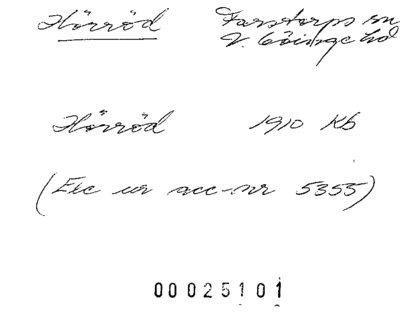 Hörröd Farstorps sn
V. Göinge hd
Hörröd 1910 Kb
(Exc ur acc-nr 5355)
00025101